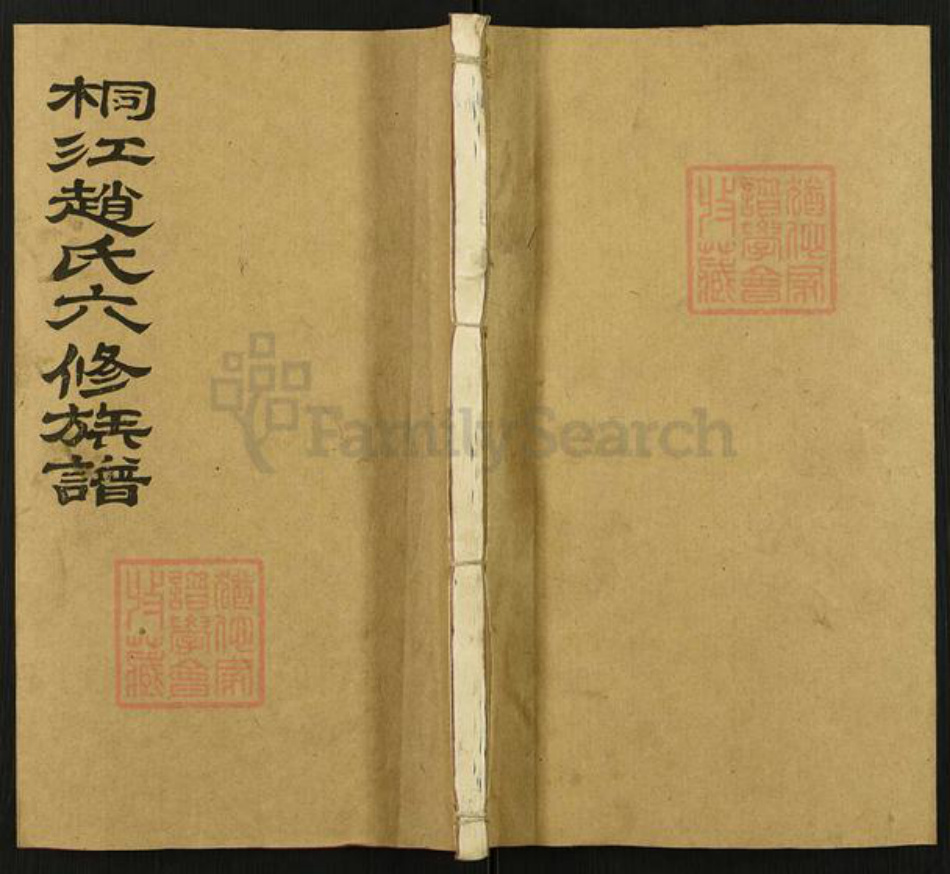 桐江趙氏六修族譜
猶他家
譜學會
收藏
FamilySearch
猶他家
譜學會
收藏